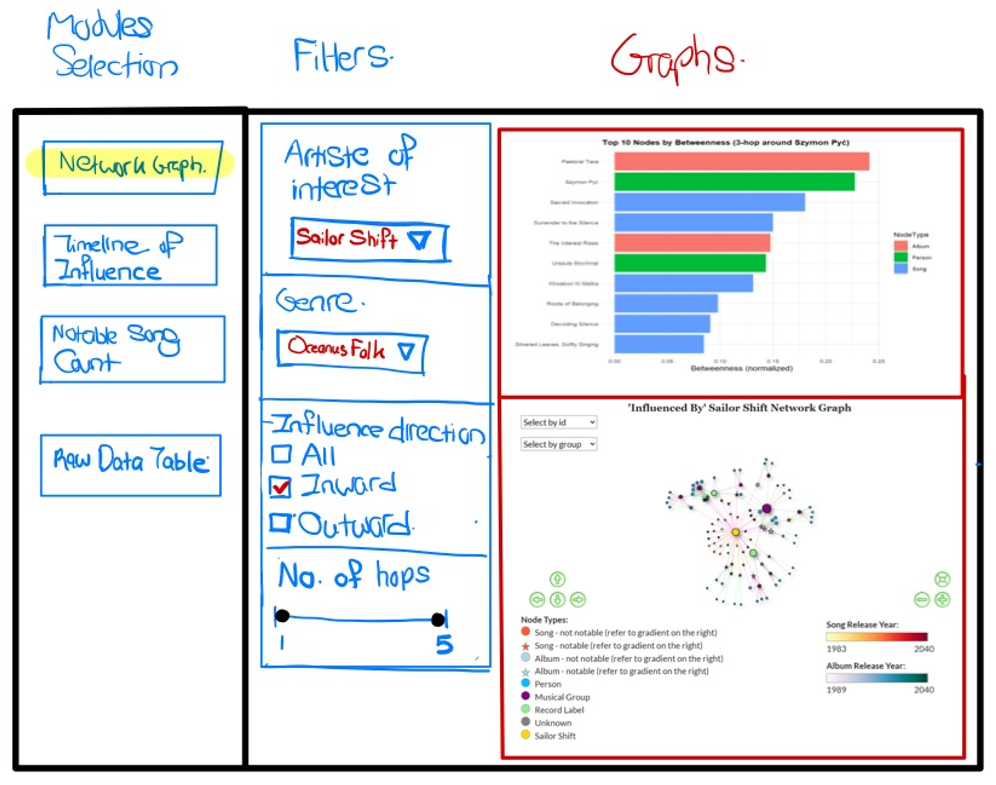 Modules
Selection
Filters.
Graphs.
Network Graph.
Timeline of
Influence
Notable Song
Count
Raw Data Table
Artiste of
interest
Sailor Shift
Genre.
Oceanus Folk
Influence direction
All
Inward
Outward.
No. of hops
1
5
Top 10 Nodes by Betweenness (3-hop around Szymon Pyć)
Pastoral Taire
Szymon Pyć
Sacred Invocation
Surrender to the Silence
The Interest Rises
Urszula Stochmal
Roots of Belonging
Decoding Silence
Silvered Leaves, Softly Singing
0.00 0.05 0.10 0.15 0.20 0.25
Betweenness (normalized)
NodeType
Album
Person
Song
'Influenced By' Sailor Shift Network Graph
Select by id
Select by group
Node Types:
Song - not notable (refer to gradient on the right)
Song - notable (refer to gradient on the right)
Album - not notable (refer to gradient on the right)
Album - notable (refer to gradient on the right)
Person
Musical Group
Record Label
Unknown
Sailor Shift
Song Release Year:
1983 2040
Album Release Year:
1989 2040